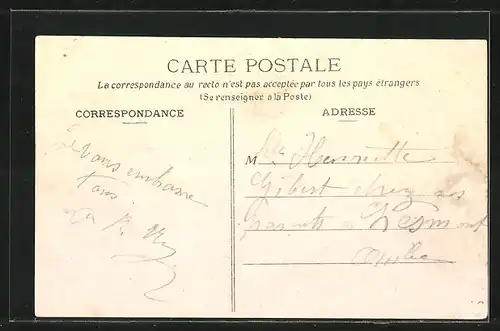 CARTE POSTALE
La correspondance au recto n'est pas acceptée par tous les pays étrangers
(Se renseigner à la Poste)
CORRESPONDANCE
ADRESSE
Vous embrasse
tous
M lle Henriette
Gibert chez ses
Parents à